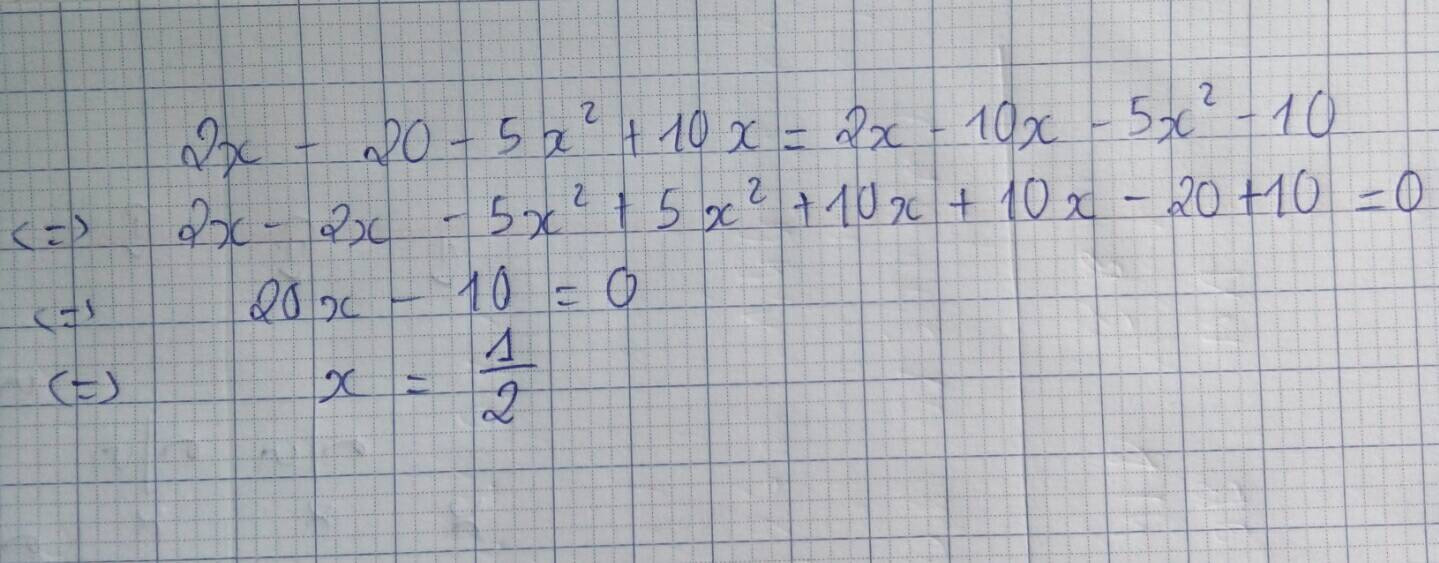 2x - 20 - 5x² + 10x = 2x - 10x - 5x² - 10
<=> 2x - 2x - 5x² + 5x² + 10x + 10x - 20 + 10 = 0
<=> 20x - 10 = 0
<=> x = 1/2